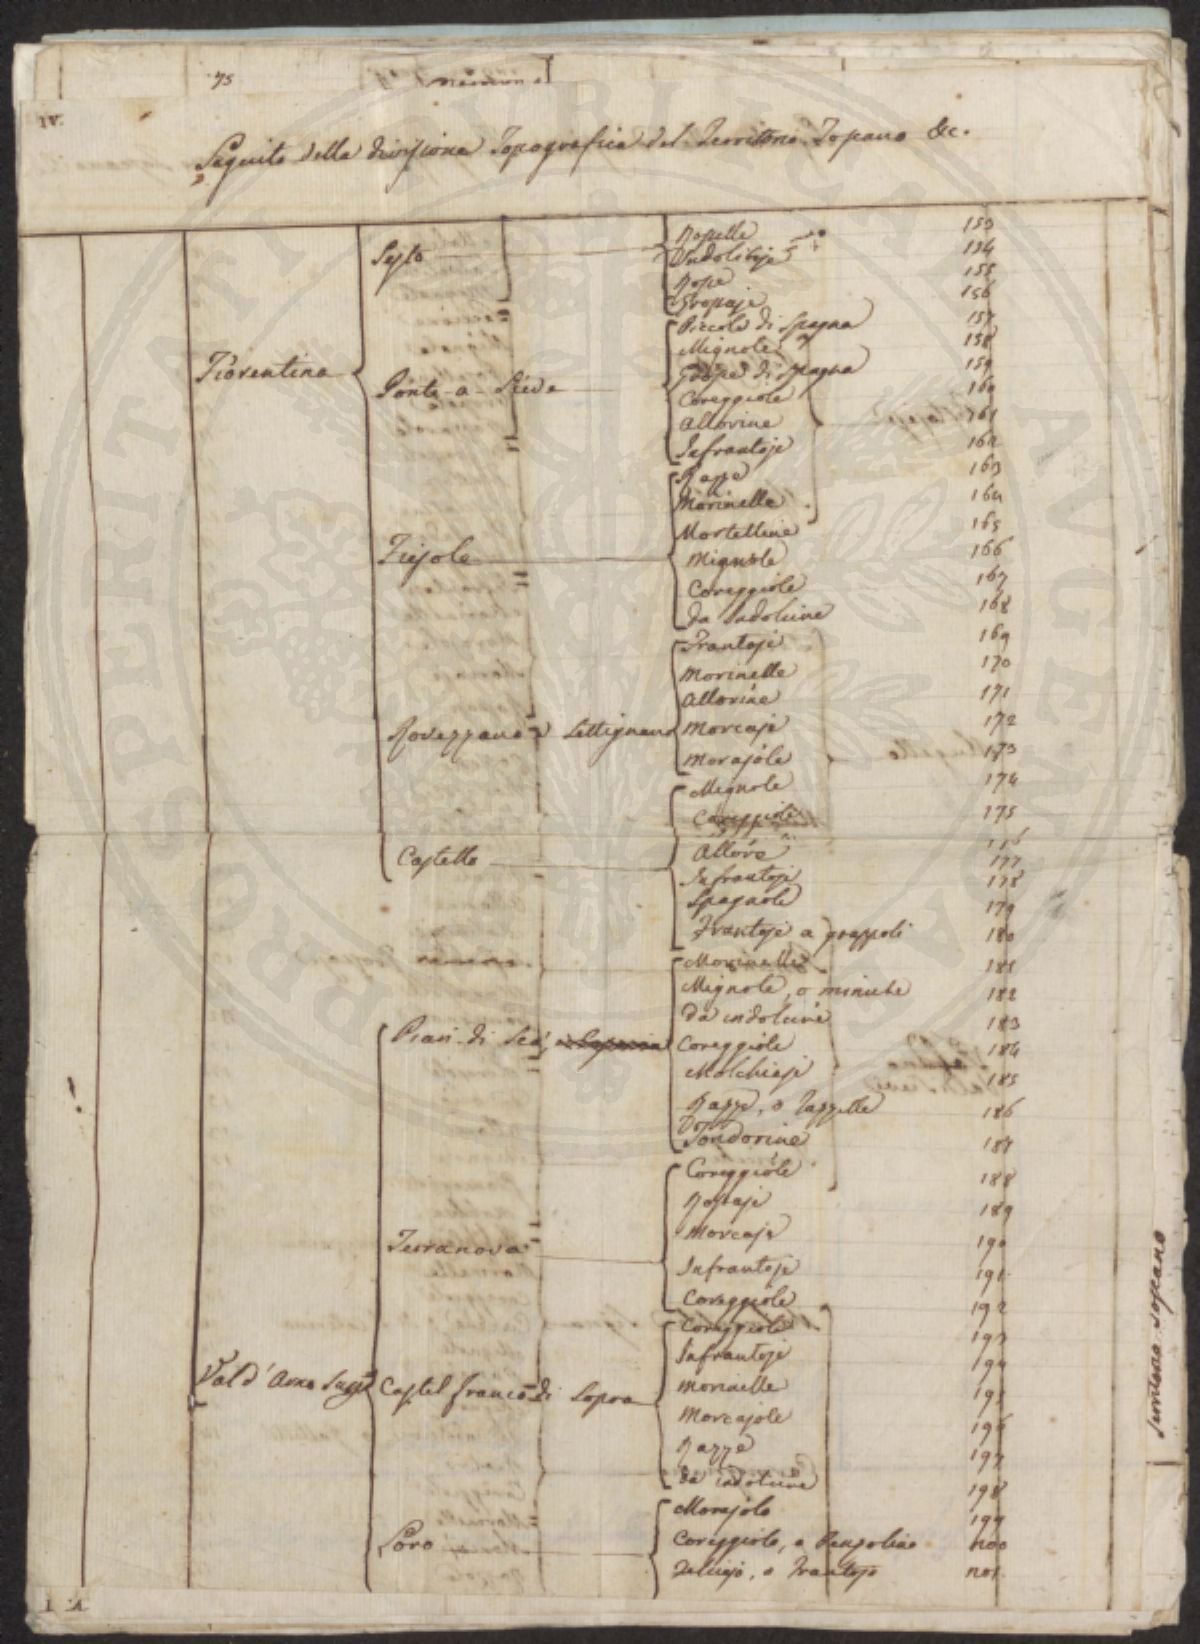 75
IV.
Seguito della divisione Topografica del Territorio Toscano &c.
Fiorentino
Sesto
Rosselle 153
Indolibije 154
Rosse 155
Grossaje 156
Ponte-a-Sieve
Piccole di Spagna 157
Mignole 158
Grosse di Spagna 159
Coreggiole 160
Allorine 161
Infrantoje 162
Fiesole
Razze 163
Morinelle 164
Mortelline 165
Mignole 166
Coreggiole 167
da Indolcire 168
Rovezzano e Settignano
Frantoje 169
Morinelle 170
Allorine 171
Morcaje 172
Morajole 173
Castello
Mignole 174
Coreggiole 175
Allore 176
Infrantoje 177
Spagnole 178
179
Frantoje a grappoli 180
Val d'Arno Supe
Pian di Sco,
Morinelle 181
Mignole, o minute 182
da indolcire 183
Coreggiole 184
Molchiaje 185
Razze, o razzelle 186
Tondorine 187
Terranova
Coreggiole 188
Rossaje 189
Morcaje 190
Infrantoje 191
Coreggiole 192
Castel franco di Sopra
Coreggiole 193
Infrantoje 194
Morinelle 195
Morcajole 196
Razze 197
da indolcire 198
Loro
Morajole 199
Coreggiole, o Penzoline 200
o Frantoje 201
SOSPITALITATI PVBLICAE AVGENDAE